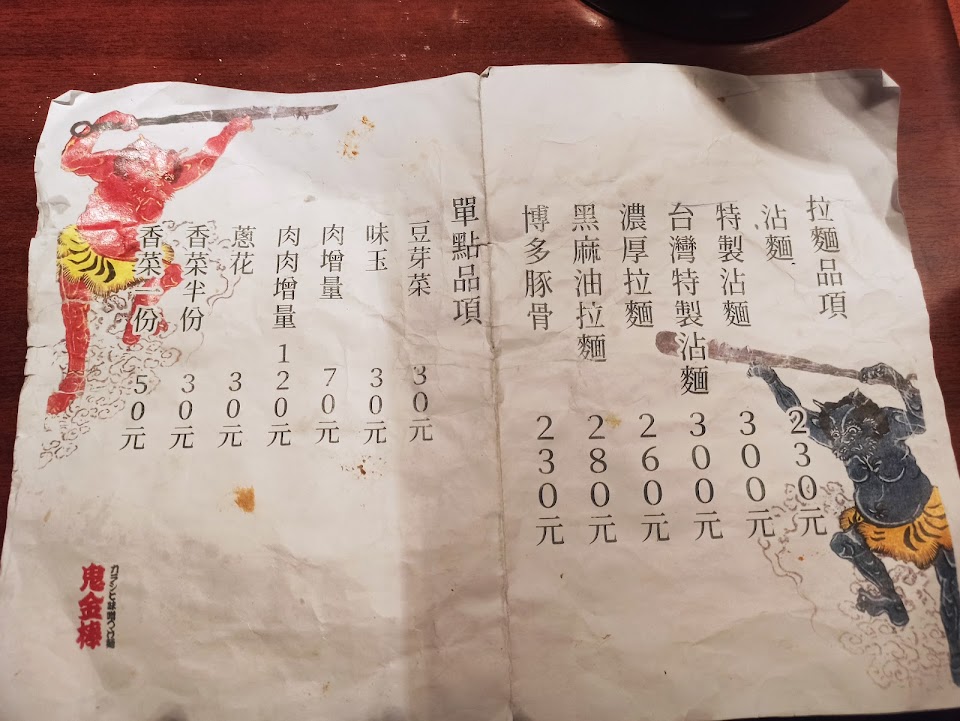 拉麵品項
沾麵 230元
特製沾麵 300元
台灣特製沾麵 300元
濃厚拉麵 260元
黑麻油拉麵 280元
博多豚骨 230元
單點品項
豆芽菜 30元
味玉 30元
肉增量 70元
肉肉增量 120元
蔥花 30元
香菜半份 30元
香菜一份 50元
カラシビ味噌らー麺
鬼金棒